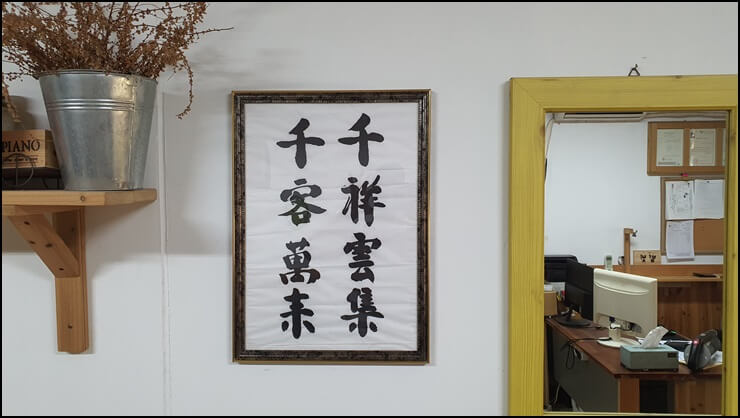 PIANO
千祥雲集
千客萬来